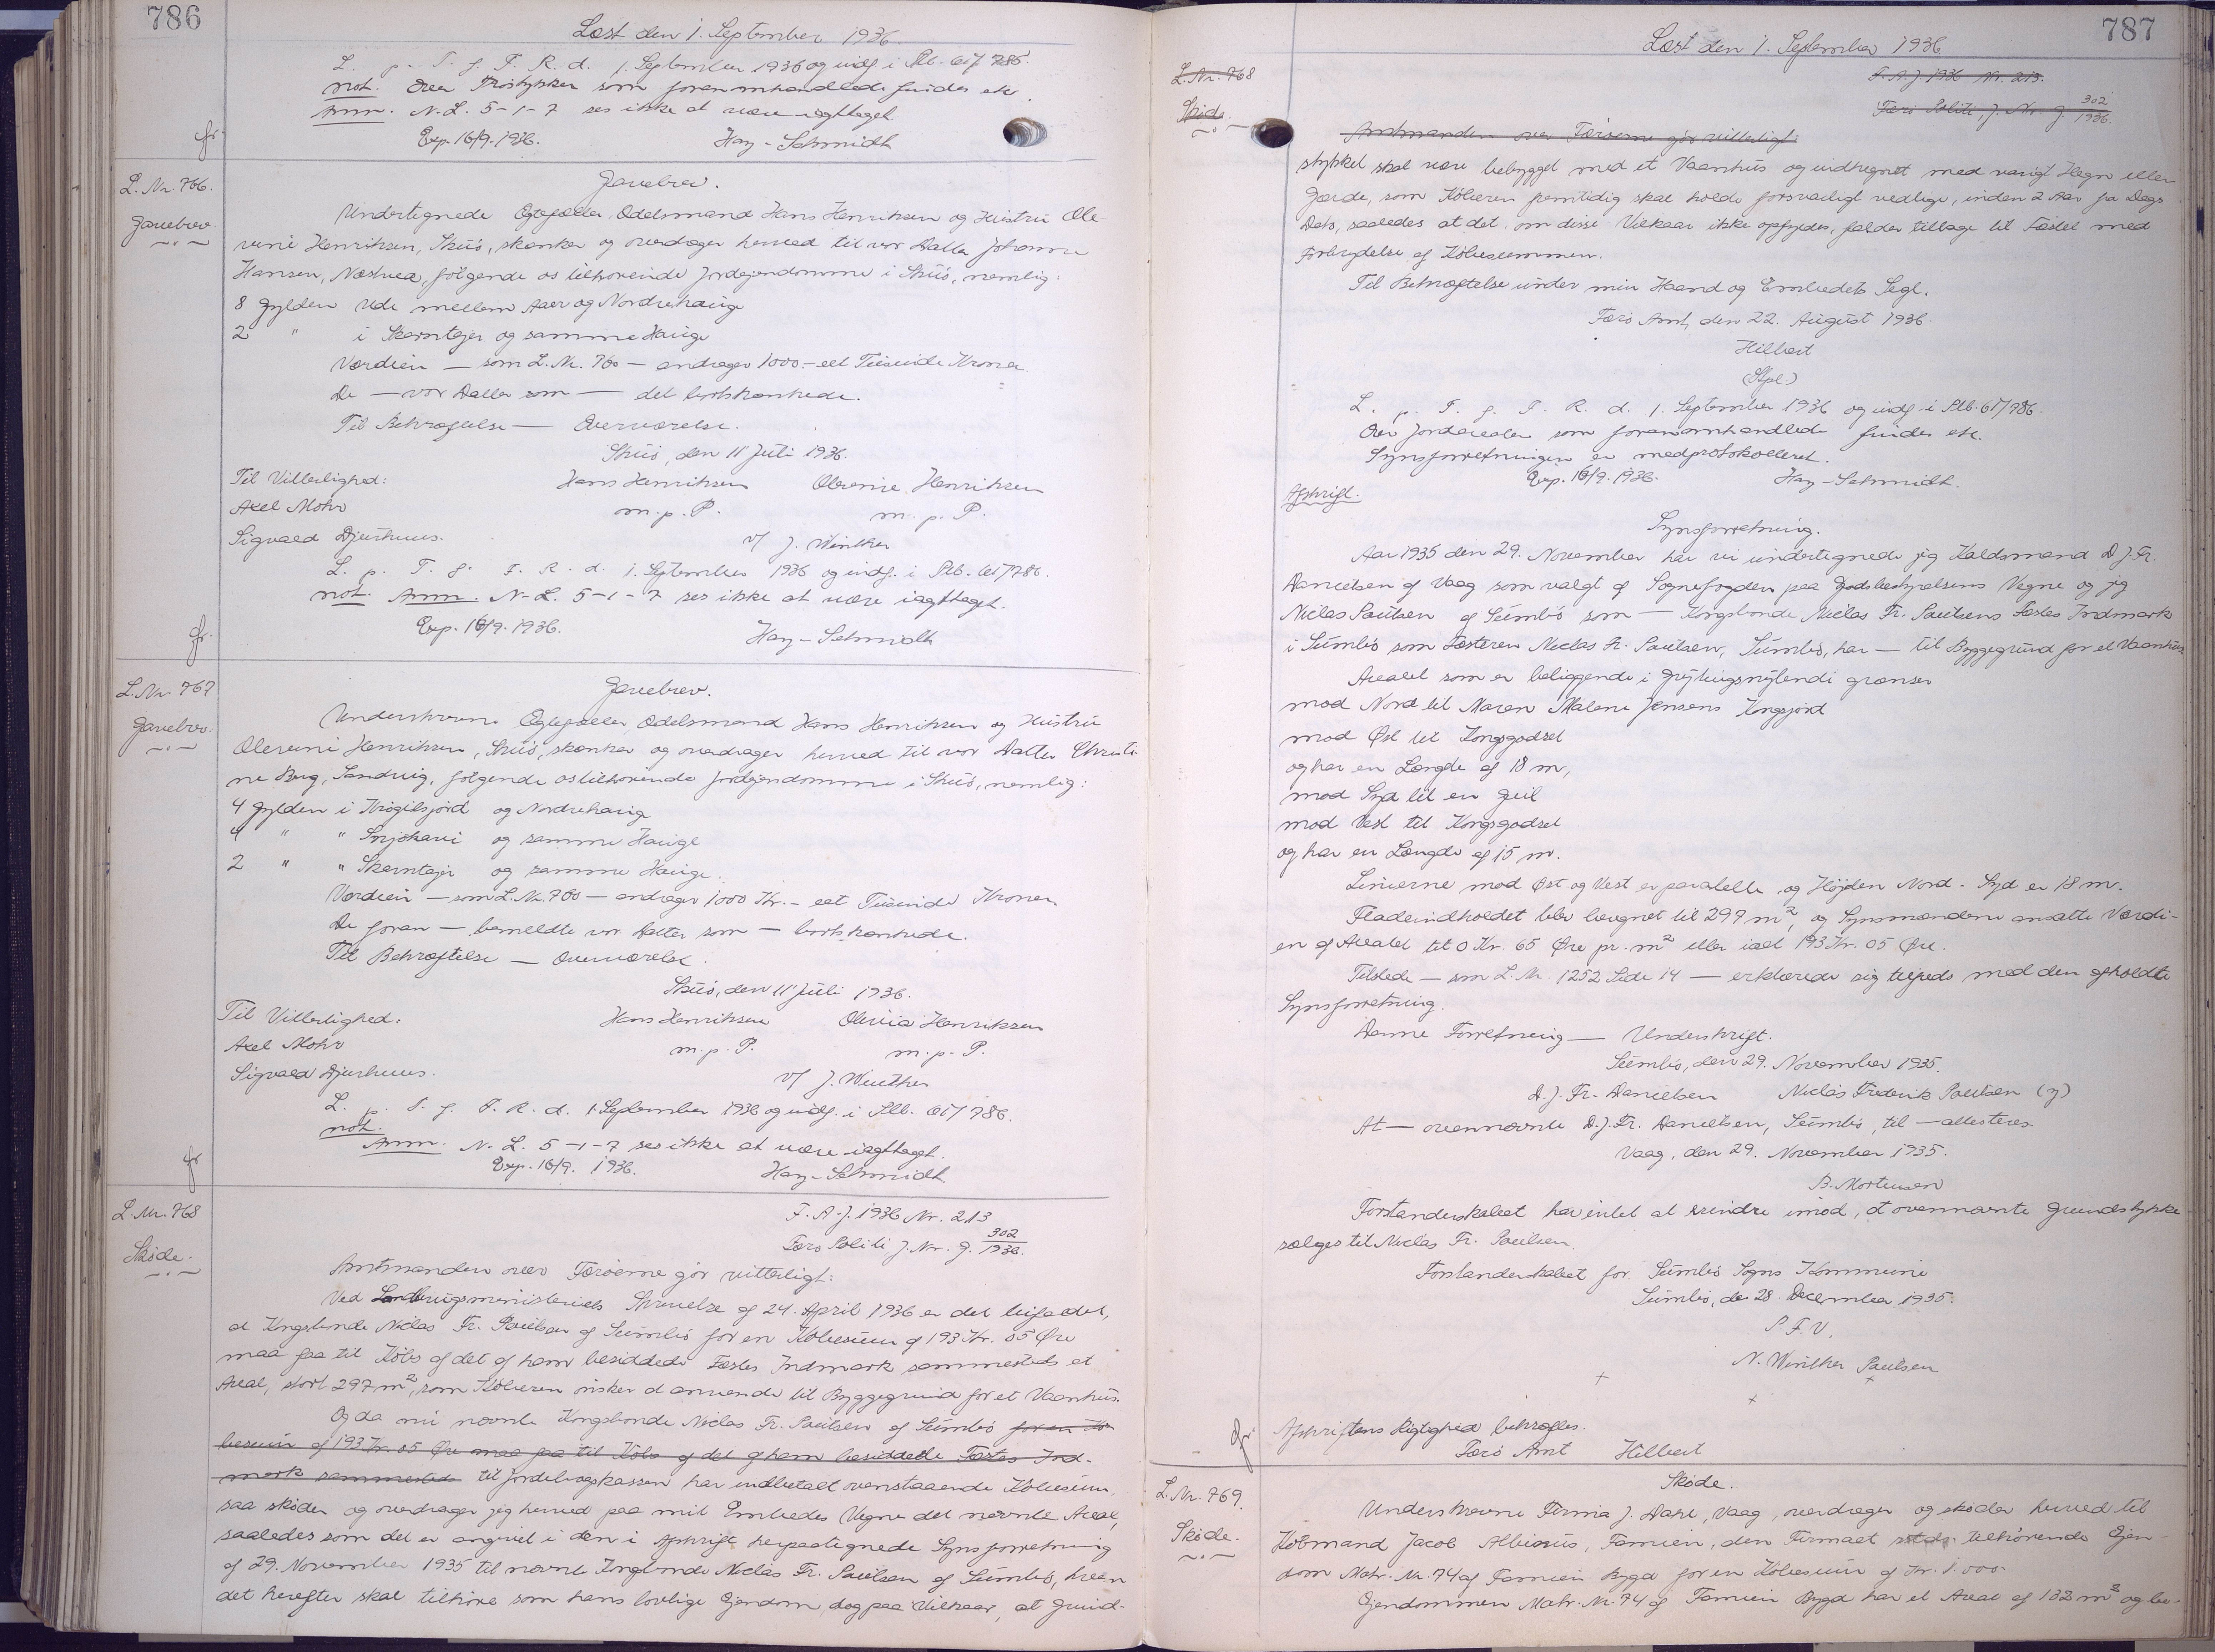 786
Læst den 1. September 1936.
L. p. T. f. F. R. d. 1. September 1936 og indf. i Skb. 61/785.
not. Over Trøstykker som foranomhandlede findes etc.
Anm. N.L. 5-1-7 ses ikke at være iagttaget.
Exp. 16/9. 1936. Hay-Schmidt
L. Nr. 766.
Gavebrev.
Gavebrev.
Undertegnede Ægtefæller, Odelsmand Hans Henriksen og Hustru Ole-
vine Henriksen, Skuö, skænker og overdrager herved til vor Datter Johanne
Hansen, Næstved, følgende os tilhørende Jordejendomme i Skuö, nemlig:
8 Gylden Ude mellem Aaer og Nordrehauge
2 " i Skarntejer og samme Hauge
Værdien — som L. Nr. 760 — andrager 1000.- eet Tusinde Kroner.
De — vor Datter som — det bortskænkede.
Til Bekræftelse — Overværelse.
Skuö, den 11 Juli 1936.
Til Vitterlighed: Hans Henriksen Olevine Henriksen
Axel Mohr m. p. P. m. p. P.
Sigvald Djurhuus. v/ J. Winther
L. p. T. f. F. R. d. 1. September 1936 og indf. i Skb. 61/786.
not. Anm. N-L. 5-1-7 ses ikke at være iagttaget.
Exp. 16/9. 1936. Hay-Schmidt
L. Nr. 767
Gavebrev.
Gavebrev.
Underskrevne Ægtefæller, Odelsmand Hans Henriksen og Hustru
Olevine Henriksen, Skuö, skænker og overdrager herved til vor Datter Christi-
ne Berg, Sandvig, følgende os tilhørende Jordejendomme i Skuö, nemlig:
4 Gylden i Krogilsjörd og Nordrehauge
4 " " og samme Hauge
2 " " Skarntejer og samme Hauge.
Værdien — som L. Nr. 760 — andrager 1000 Kr. - eet Tusinde Kroner
De foran — bemeldte vor Datter som — bortskænkede.
Til Bekræftelse — Overværelse.
Skuö, den 11' Juli 1936.
Til Vitterlighed: Hans Henriksen Olevine Henriksen
Axel Mohr m. p. P. m. p. P.
Sigvald Djurhuus. v/ J. Winther
L. p. T. f. F. R. d. 1 September 1936 og indf. i Skb. 61/786.
not.
Anm. N. L. 5-1-7 ses ikke at være iagttaget.
Exp. 16/9. 1936. Hay-Schmidt
L. Nr. 768
Skøde.
F. A. J. 1936 Nr. 213
Færø Politi J. Nr. G. 302/1936.
Amtmanden over Færøerne gør vitterligt:
Ved Landbrugsministeriets Skrivelse af 24. April 1936 er det bifaldet,
at Kongsbonde Niclas Fr. Poulsen af Sumbö for en Købesum af 193 Kr. 05 Øre
maa faa til Købs af det af ham besiddede Fæstes Indmark sammesteds et
Areal, stort 297 m², som Køberen ønsker at anvende til Byggegrund for et Vaanhus.
Og da nu nævnte Kongsbonde Niclas Fr. Poulsen af Sumbö for en Kø-
besum af 193 Kr. 05 Øre maa faa til Købs af det af ham besiddede Fæstes Ind-
mark sammesteds til Jordebogskassen har indbetalt ovenstaaende Købesum,
saa skøder og overdrager jeg herved paa mit Embedes Vegne det nævnte Areal,
saaledes som det er angivet i den i Afskrift herpaategnede Synsforretning
af 29. November 1935 til nævnte Kongsbonde Niclas Fr. Poulsen af Sumbö, hvem
det herefter skal tilhøre som hans lovlige Ejendom, dog paa Vilkaar, at Grund-
787
Læst den 1. September 1936
L. Nr. 768
Skøde.
F. A. J. 1936 Nr. 213.
Færø Politi, J. Nr. G. 302/1936.
Amtmanden over Færøerne gør vitterligt:
stykket skal være bebygget med et Vaanhus og indhegnet med varigt Hegn eller
Gærde, som Køberen fremtidig skal holde forsvarligt vedlige, inden 2 Aar fra Dags
Dato, saaledes at det, om disse Vilkaar ikke opfyldes, falder tilbage til Fæstet med
Fortabelse af Købesummen.
Til Bekræftelse under min Haand og Embedets Segl.
Færø Amt, den 22. August 1936.
Hilbert
(Stpl.)
L. p. T. f. F. R. d. 1. September 1936 og indf. i Skb. 61/786.
Over Jordarealer som foranomhandlede findes etc.
Synsforretningen er medprotokolleret.
Exp. 16/9. 1936. Hay-Schmidt.
Afskrift.
Synsforretning.
Aar 1935 den 29. November har vi undertegnede jeg Kaldsmand D. J. Fr.
Danielsen af Vaag som valgt af Sognefogden paa Godsbestyrelsens Vegne og jeg
Niclas Poulsen af Sumbö som — Kongsbonde Niclas Fr. Poulsens Fæstes Indmark
i Sumbö som Fæsteren Niclas Fr. Poulsen, Sumbö, har — til Byggegrund for et Vaanhus.
Arealet som er beliggende i grænser
mod Nord til Maren Malene Jensens Kongsjord
mod Øst til Kongsgodset
og har en Længde af 18 m,
mod Syd til en Geil
mod Vest til Kongsgodset
og har en Længde af 15 m.
Linierne mod Øst og Vest er paralelle og Højden Nord - Syd er 18 m.
Fladeindholdet blev beregnet til 297 m², og Synsmændene ansatte Værdi-
en af Arealet til 0 Kr. 65 Øre pr. m² eller ialt 193 Kr. 05 Øre.
Tilstede — som L. Nr. 1252 Side 14 — erklærede sig tilfreds med den afholdte
Synsforretning.
Denne Forretning — Underskrift.
Sumbö, den 29. November 1935.
D. J. Fr. Danielsen Niclas Frederik Poulsen
At — ovennævnte D. J. Fr. Danielsen, Sumbö, til — attesteres
Vaag, den 29. November 1935.
B. Mortensen
Forstanderskabet har intet at erindre imod, at ovennævnte Grundstykke
sælges til Niclas Fr. Poulsen.
Forstanderskabet for Sumbö Sogns Kommune
Sumbö, den 28. December 1935.
P. F. V.
N. Winther Poulsen
Afskriftens Rigtighed bekræftes.
Færø Amt Hilbert
L. Nr. 769.
Skøde.
Skøde.
Underskrevne Firma J. Dahl, Vaag, overdrager og skøder herved til
Købmand Jacob Albinus, Famien, den Firmaet tilhørende Ejen-
dom Matr. Nr. 74 af Famien Bygd for en Købesum af Kr. 1.000.
Ejendommen Matr. Nr. 74 af Famien Bygd har et Areal af 132 m² og be-